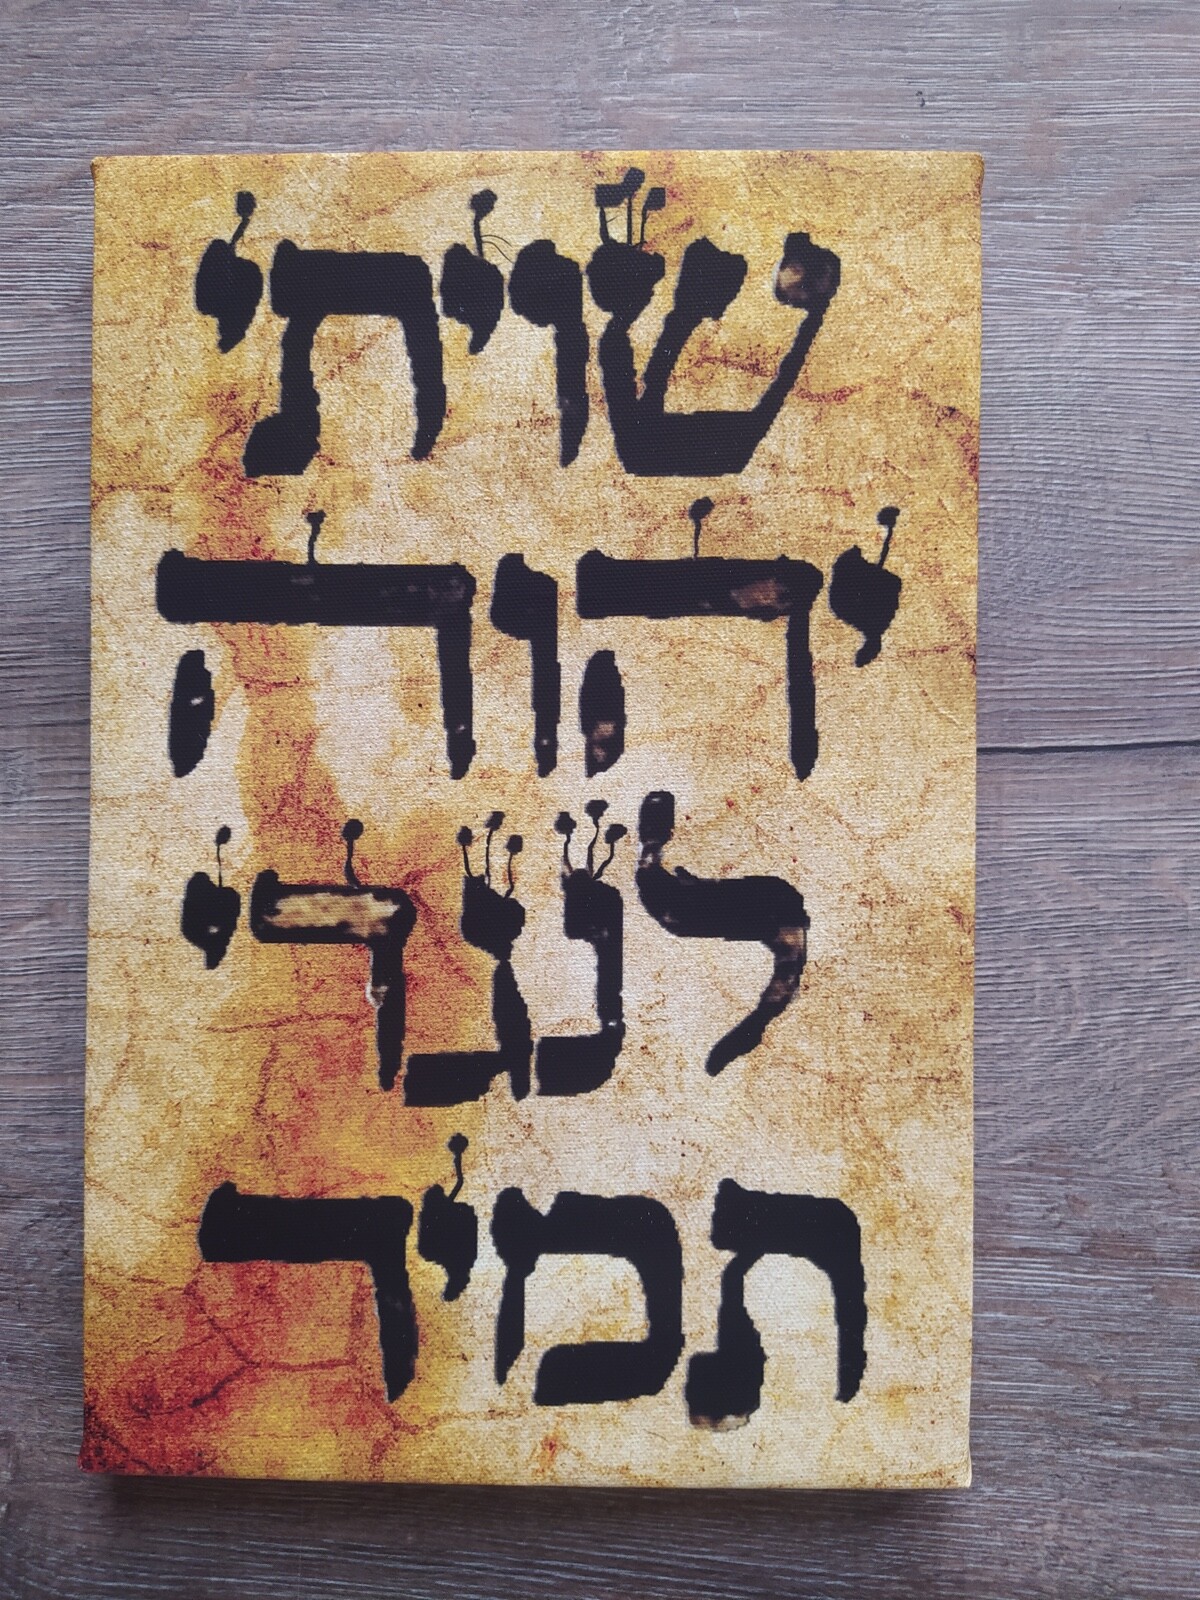 שויתי
יהוה
לנגדי
תמיד